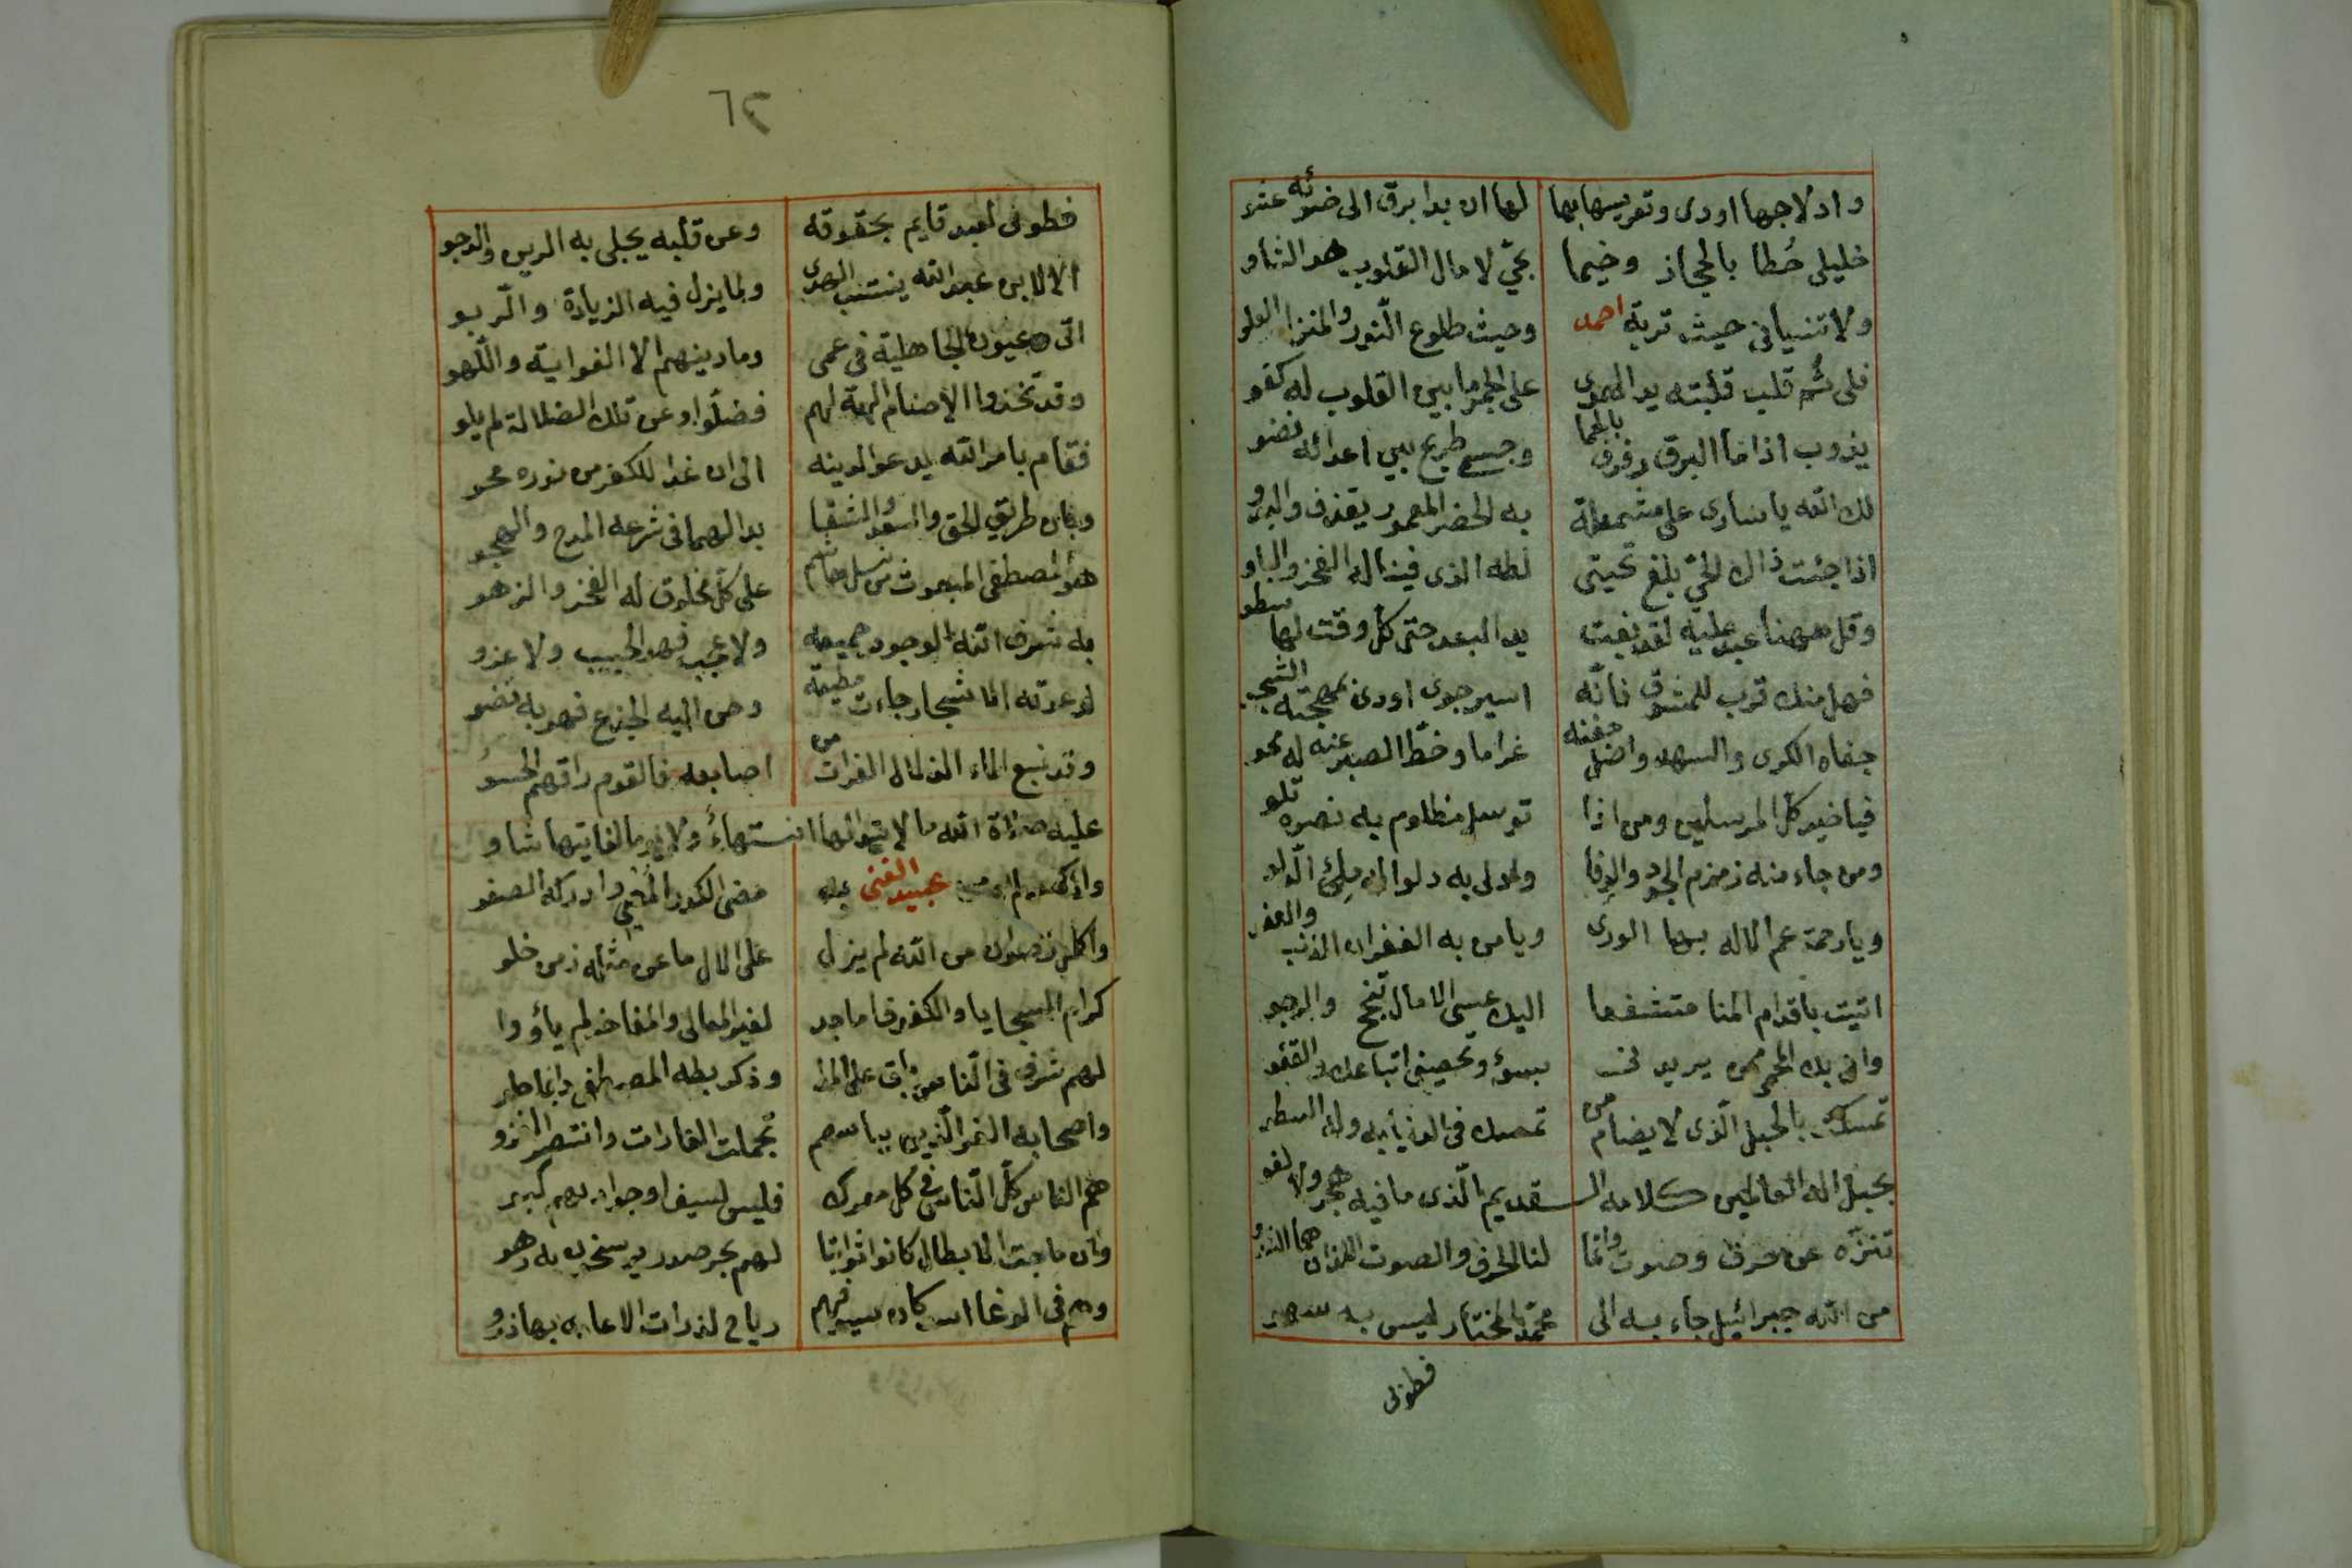 وادلاجها اودى وتعريسها بها لها ان بدا برق الى ضوئه عشو
خليلى حُطا بالحجاز وخيما بحيّ لامال القلوب هو الشاو
ولا تنسيانى حيث تربة احمد وحيث طلوع النور والمنزل العلو
فلى ثَم قلب قلبته يد الهوى على الجمر ما بين القلوب له كفو
يذوب اذا ما البرق رفرف بالحما وجسم طريح بين اعدائه نضو
لك الله يا سارى على مشمعلة به الحضر المعمور يقذف والبدو
اذا جئت ذاك الحيّ بلغ تحيتى لطه الذى فينا له الفخر والباو
وقل ههنا عبد عليه لقد بغت يد البعد حتى كل وقت لها سطو
فهل منك قرب للمشوق فانّه اسير جوى اودى بمهجته الشجو
جفاه الكرى والسهد واصل جفنه غراما وخطّ الصبر عنه له محو
فيا خير كل المرسلين ومن اذا توسل مظلوم به نصره تلو
ومن جاء منه زمزم الجود والوفا وادلى به دلوا له ملئ الدلو
ويا رحمة عم الاله بها الورى ويا من به الغفران للذنب والعفو
اتيت باقدام المنا متشفعا اليك عسى الامال تنجح والرجو
وانى بك المحمى ممن يريدنى بسوء وتحصينى اتباعك والقفو
تمسكت بالحبل الذى لا يضام من تمسك فى الدنيا به وله السطو
بحبل اله العالمين كلامه القديم الذى ما فيه هجر ولا لغو
تنزّه عن حرف وصوت وانما لنا الحرف والصوت اللذان هما النحو
من الله جبرائيل جاء به الى محمد المختار ليس به سهو
فطوبى
٦٢
فطوبى لعبد قايم بحقوقه وعن قلبه يجلى به الرين والدجو
الا يا ابن عبد الله ينتسب الهدى ولما يزل فيه الزيادة والربو
اتى وعيون الجاهلية فى عمى وما دينهم الا الغواية واللهو
وقد تخذوا الاصنام الهة لهم فضلّوا وعن تلك الضلالة لم يلو
فقام بامر الله يدعو لدينه الى ان غدا للكفر من نوره محو
وبان طريق الحق والسعد والشقا بدا لهما فى شرعه المدح والهجو
هو المصطفى المبعوث من نسل هاشم على كل مخلوق له الفخر والزهو
به شرف الله الوجود جميعه ولا عجب فهو الحبيب ولا غرو
لدعوته الاشجار جاءت مطيعة وحن اليه الجذع فهو به نضو
وقد نبع الماء الزلال الفرات من اصابعه فالقوم راقهم الحسو
عليه صلاة الله ما لا يتوالها انتهاءُ ولا يوما لغايتها شاو
وازكى سلام من عبيد الغنى به مضى الكدر المضنى وادركه الصفو
واكمل رضوان من الله لم يزل على الال ما عن مثله زمن خلو
كرام السجايا والكفوف اماجد لغير المعالى والمفاخر لم يأووا
لهم شرف فى الناس باق على المدا وذكر بطه المصطفى دايما حلو
واصحابه الغر الذين بباسهم تجملت الغارات وانتصر الغزو
هم الناس كل الناس فى كل معرك فليس لسيف او جواد بهم كبو
وان ماجت الابطال كانوا ثوابتا لهم بحر صدر يرسخون به رهو
وهم فى الوغا اسد كان سيوفهم رياح لذرات الاعادى بها ذرو